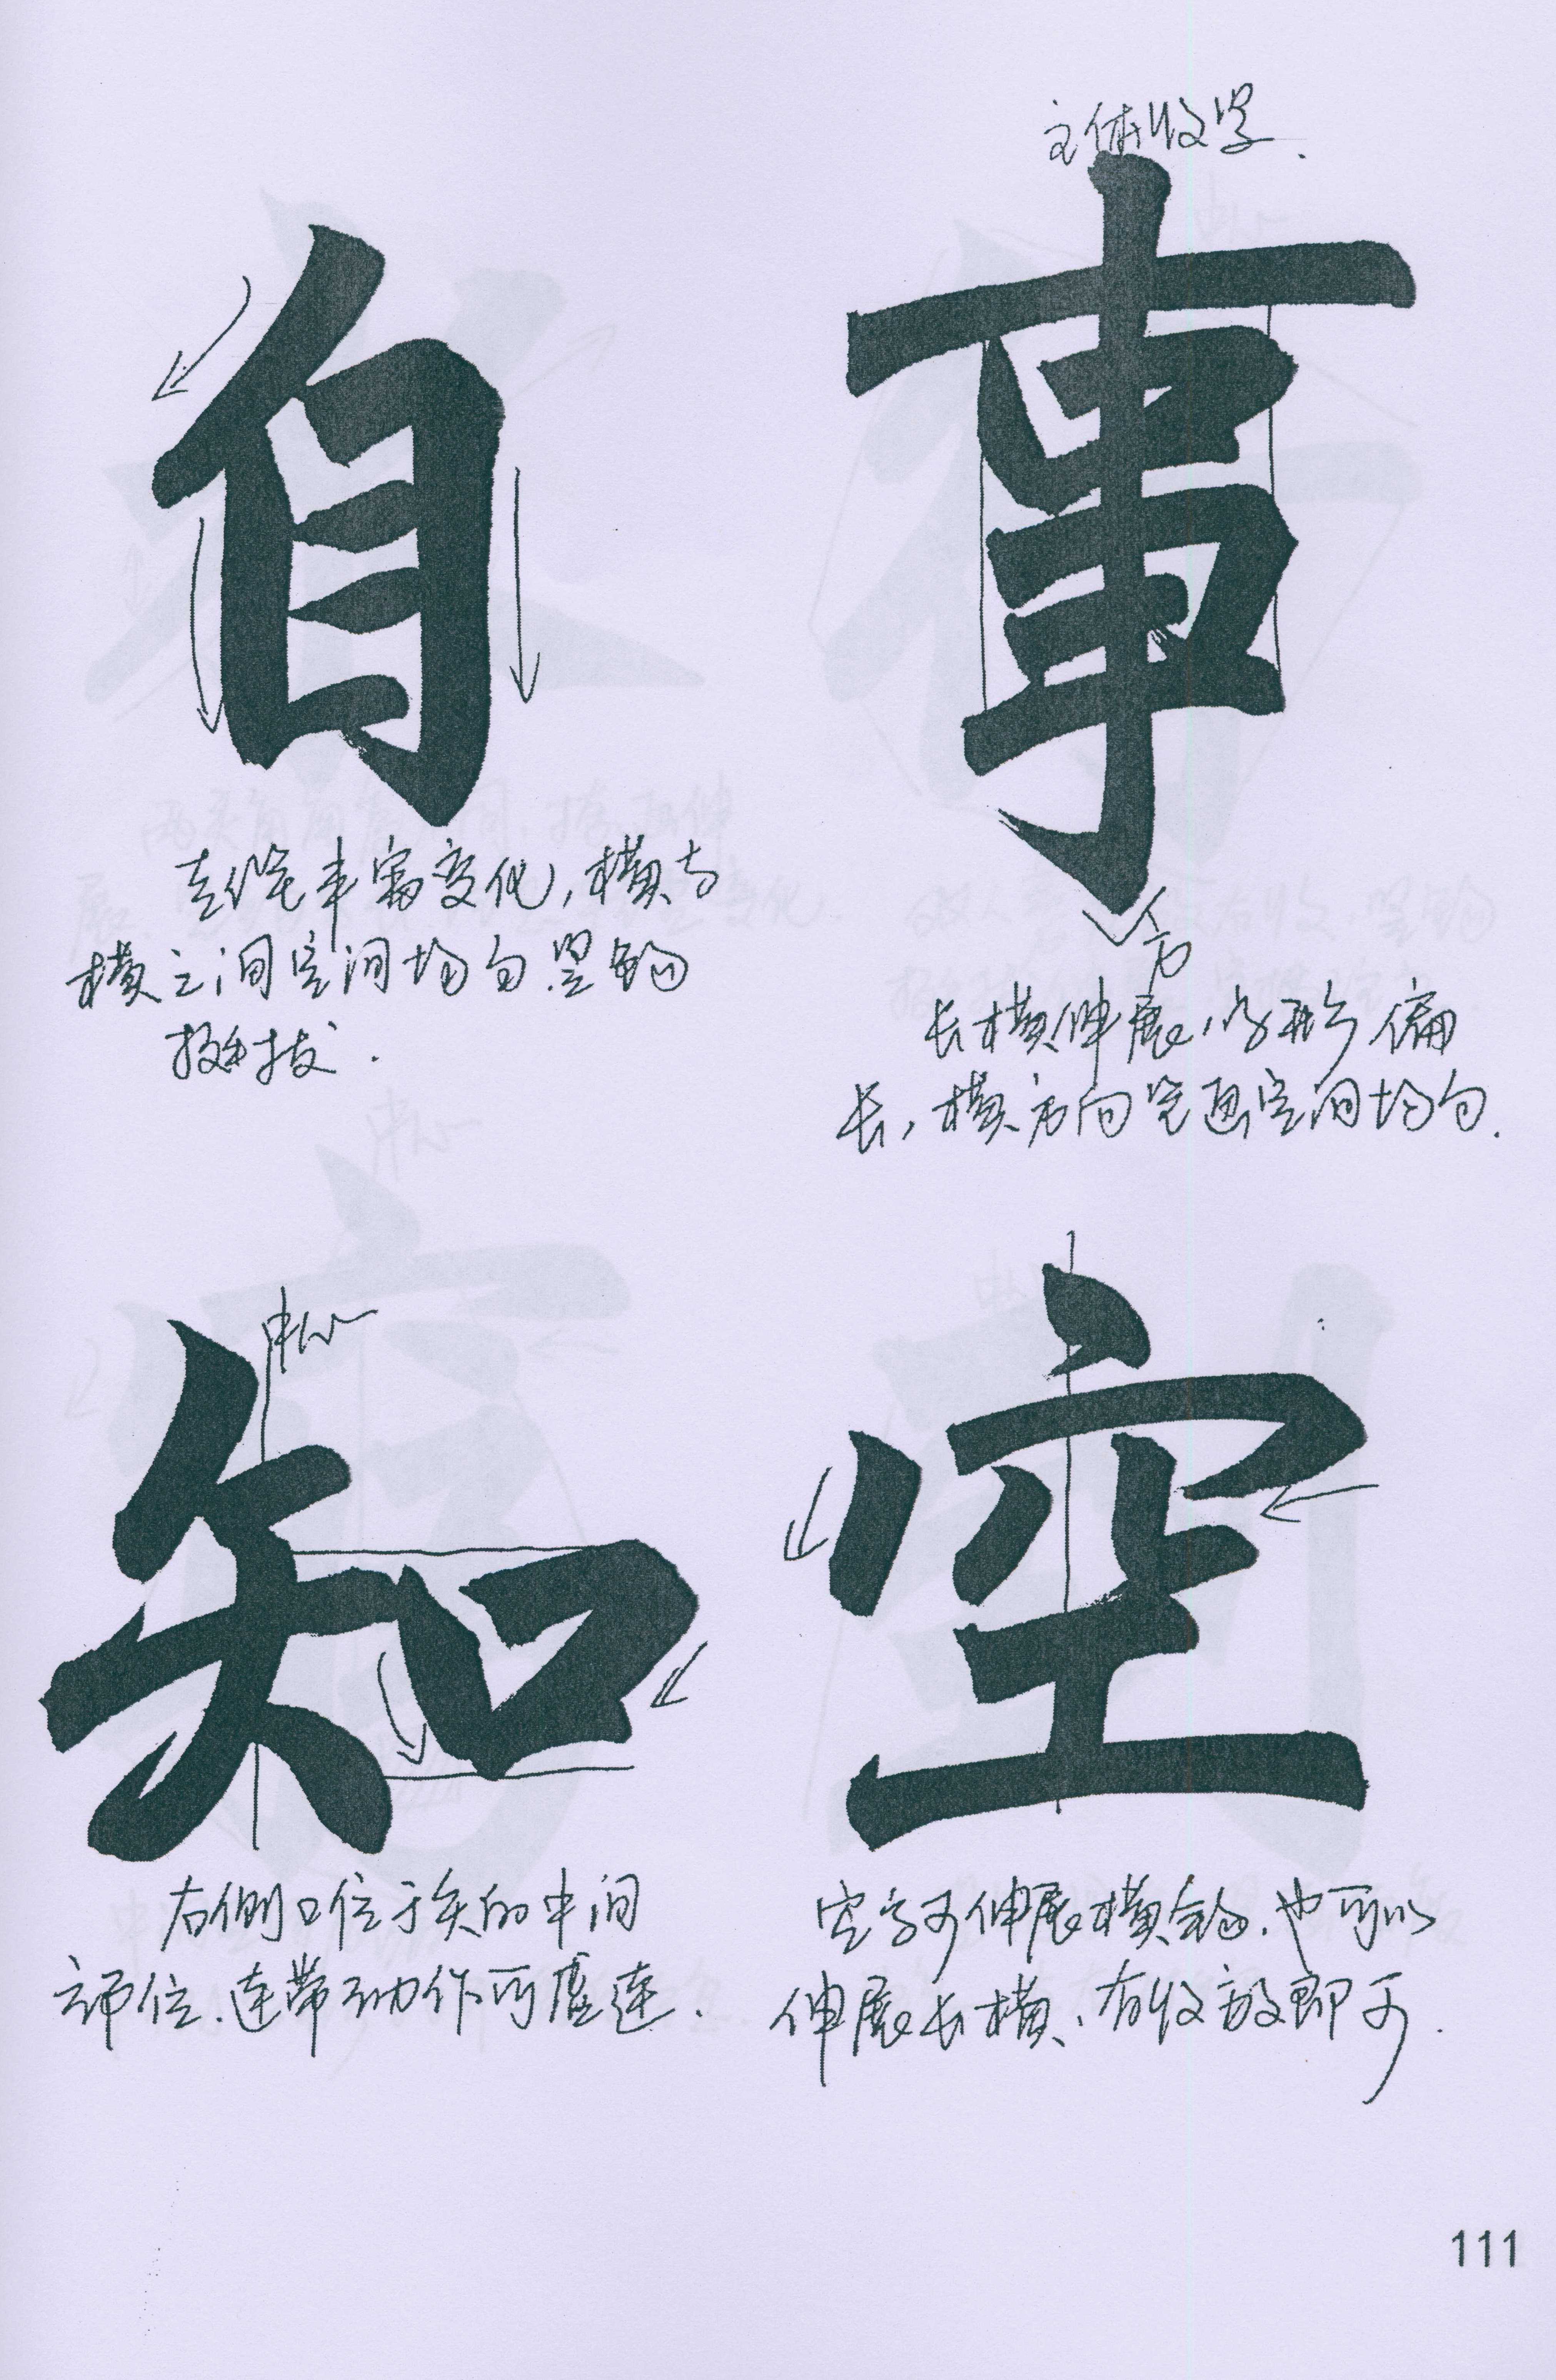 主体收紧.
自
事
去组笔丰富变化,横与
横之间空间均匀.竖钩
挺拔.
方
长横伸展,字形偏
长,横方向笔画空间均匀.
中心
知
空
右侧口位于矢的中间
部位.连带动作可虚连.
空字可伸展横钩.也可以
伸展长横.有收放即可.
111